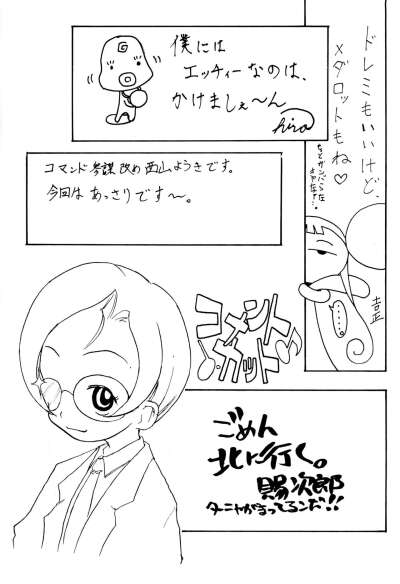 僕には
エッチィーなのは、
かけましぇ〜ん
hiro
G
ドレミもいいけど、
メダロットもね♡
吉正
コマンド参謀 改め 西山ようきです。
今回は あっさりです〜。
コメント
カット
ごめん
北に行く。
賜次郎
ターニャがまってるンだ!!